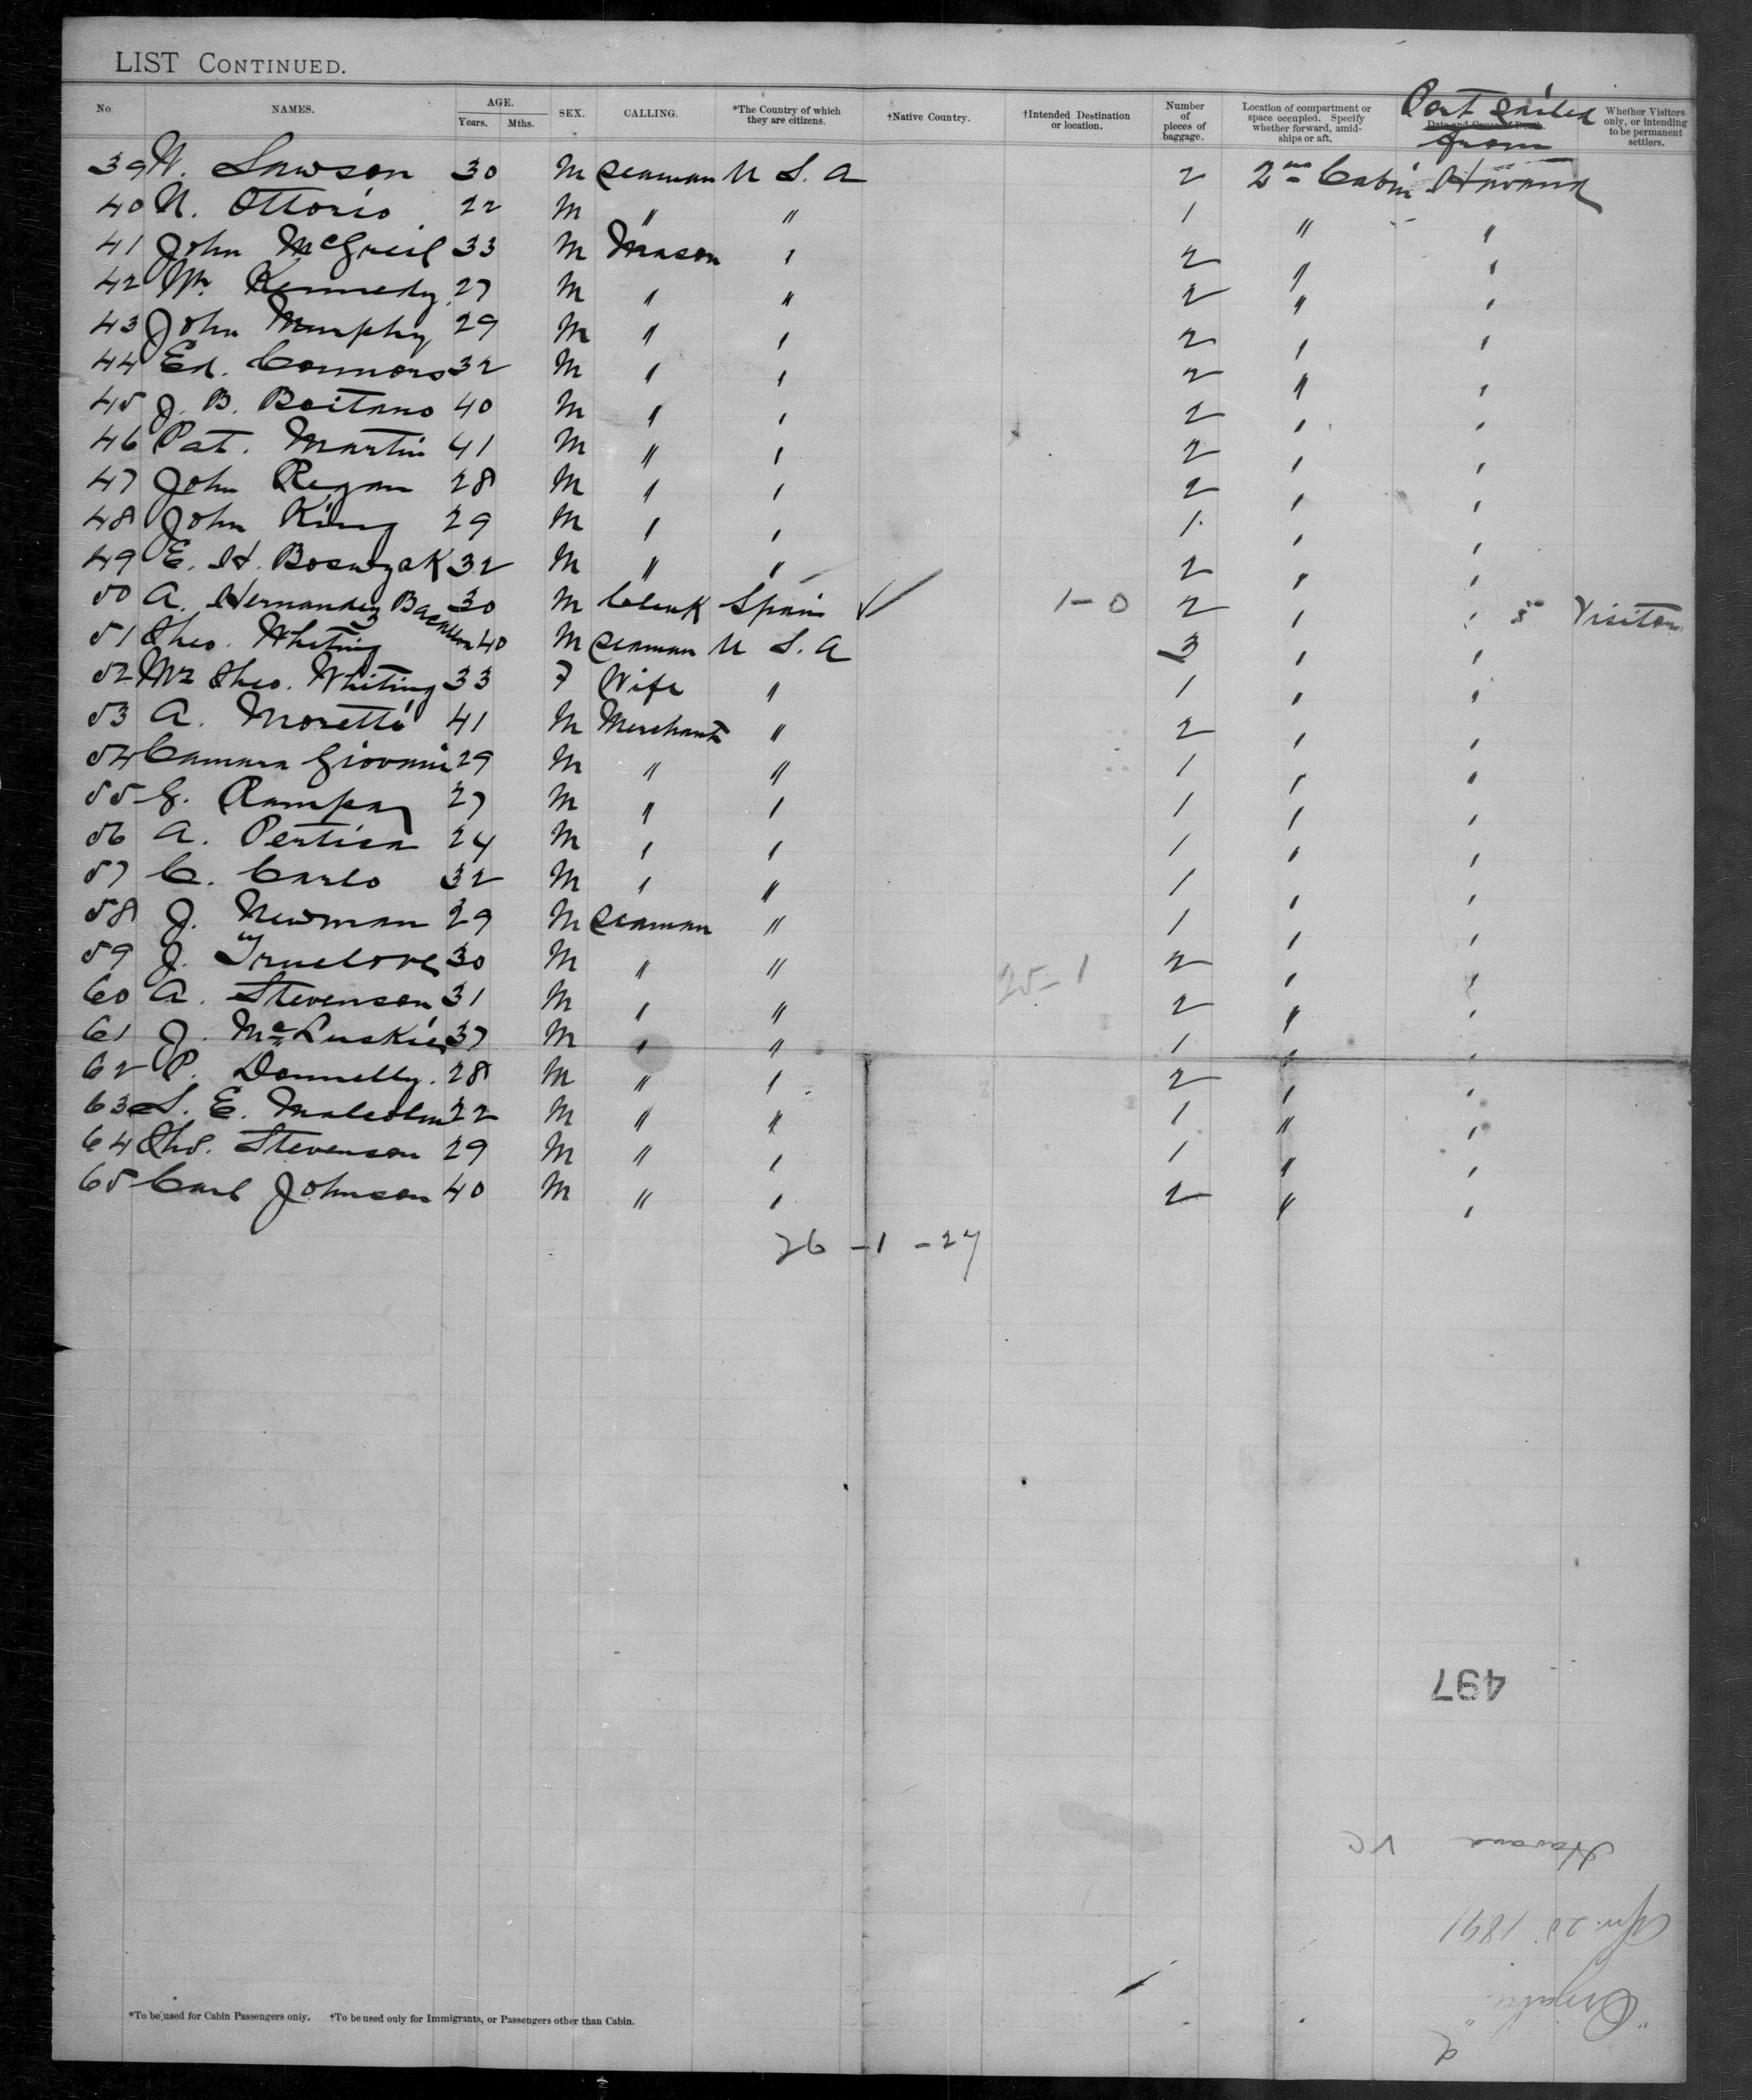 LIST CONTINUED.
No. NAMES. AGE. Years. Mths. SEX. CALLING. *The Country of which they are citizens. †Native Country. †Intended Destination or location. Number of pieces of baggage. Location of compartment or space occupied. Specify whether forward, amidships or aft. Date and Cause of Death. Port sailed from Whether Visitors only, or intending to be permanent settlers.
39 N. Lawson 30 M Seaman U S. A 2 2nd Cabin Havana
40 N. Ottorio 22 M " " 1 " "
41 John McGreil 33 M Mason " 2 " "
42 Wm. Kennedy 27 M " " 2 " "
43 John Murphy 29 M " " 2 " "
44 Ed. Connors 32 M " " 2 " "
45 J. B. Boitano 40 M " " 2 " "
46 Pat. Martin 41 M " " 2 " "
47 John Regan 28 M " " 2 " "
48 John King 29 M " " 1 " "
49 E. H. 32 M " " 2 " "
50 A. Hernandez 30 M Clerk Spain ✓ 1-0 2 " " Visitor
51 Theo. Whiting 40 M Seaman U S. A 3 " "
52 Mrs Theo. Whiting 33 F Wife " 1 " "
53 A. Moretti 41 M Merchant " 2 " "
54 Camara Giovani 29 M " " 1 " "
55 G. 27 M " " 1 " "
56 A. Pertica 24 M " " 1 " "
57 C. Carlo 32 M " " 1 " "
58 J. Newman 29 M Seaman " 1 " "
59 J. Truelove 30 M " " 25-1 2 " "
60 A. Stevenson 31 M " " 2 " "
61 J. 37 M " " 1 " "
62 P. Donnelly. 28 M " " 2 " "
63 S. E. Malcolm 22 M " " 1 " "
64 Stevenson 29 M " " 1 " "
65 Carl Johnson 40 M " " 2 " "
26 -1 -27
497
Havana VC
1891
"Orizaba"
2
*To be used for Cabin Passengers only. †To be used only for Immigrants, or Passengers other than Cabin.